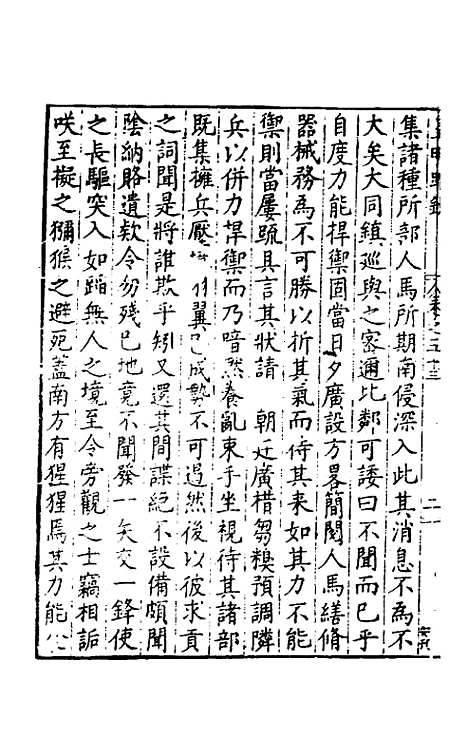 集諸種所部人馬所期南侵深入此其消息不為不
大矣大同鎮巡與之密邇比鄰可諉曰不聞而已乎
自度力能捍禦固當日夕廣設方畧簡閱人馬繕脩
器械務為不可勝以折其氣而待其来如其力不能
禦則當屢䟽具言其状請 朝廷廣措芻糗預調隣
兵以併力捍禦而乃喑然養亂束手坐視待其諸部
既集擁兵壓 翼已成勢不可遏然後以彼求貢
之詞聞是将誰欺乎矧又還其間諜絕不設備頗聞
陰納賂遺欵令勿殘己地竟不聞發一矢交一鋒使
之長驅突入如蹈無人之境至令旁觀之士竊相詬
咲至擬之獼猴之避 蓋南方有猩猩焉其力能